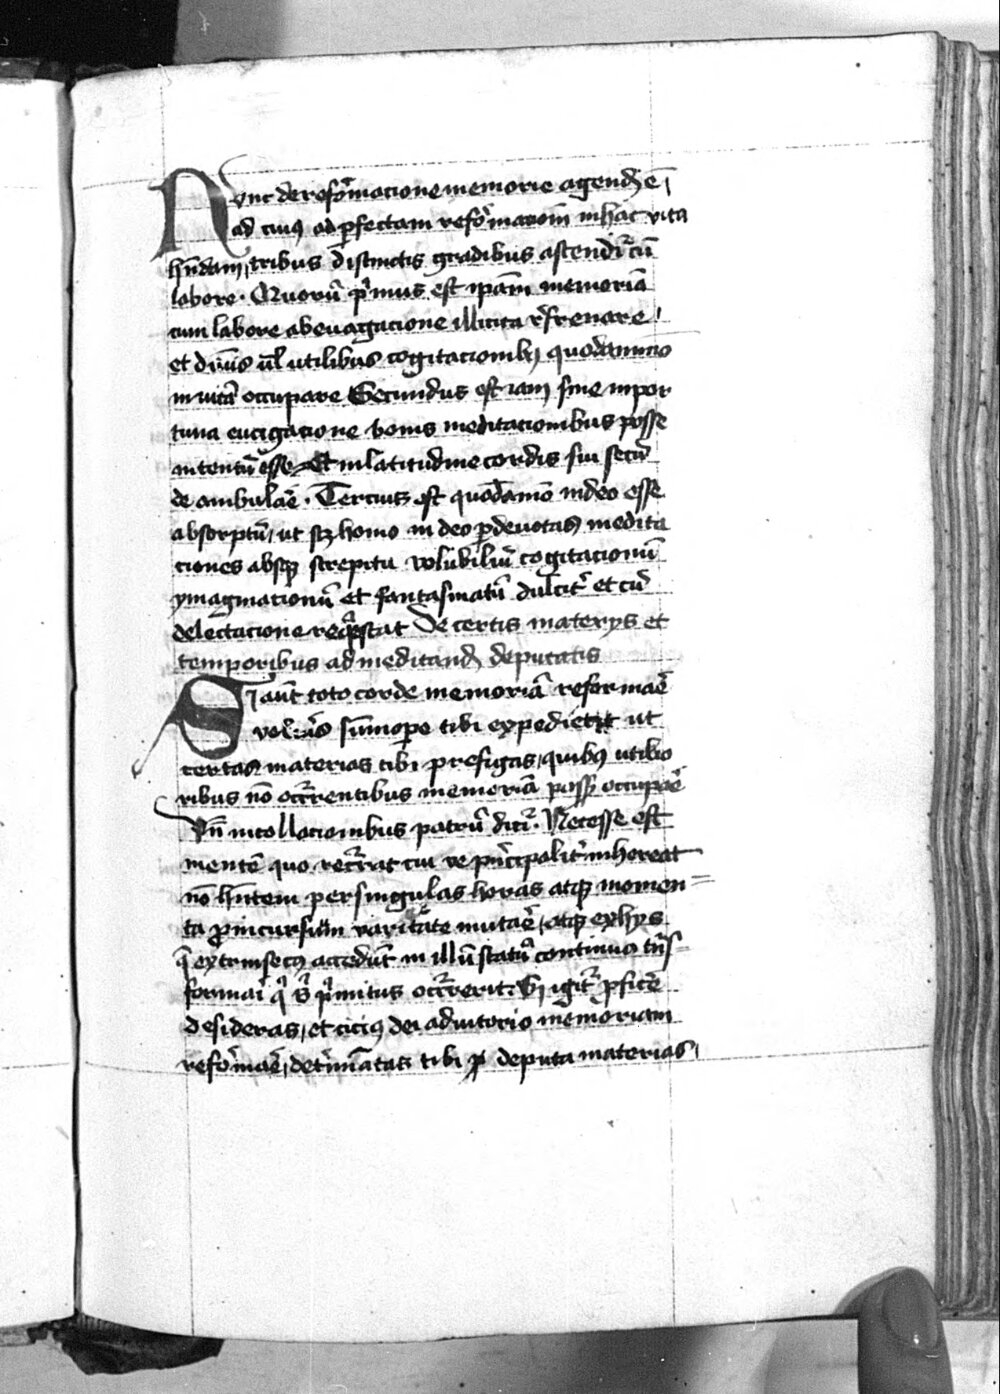 Nunc de refor̄macione memorie agend̄ ē
ad cuiꝰ ad ꝑfectam refor̄macōm in hac vita
hn̄dam, tribus distinctis gradibus ascendit̄ cū
labore. Quorū pͥmus est ipām memoriā
cum labore ab evagacione illicita refrenare,
et diuīs ul̄ utilibus cogitacionibꝫ quodammo
inuitā occupare Secundus est iam sine inpor
tuna euagacione bonis meditacionibus posse
intentū esse Et in latitudine cordis sui secū
de ambulār̄. Tercius est quodāmō in deo esse
absorptū, ut sꝫ homo in deo ꝑ deuotas medita
ciones absqꝫ strepitu volubiliū cogitacionū
ymaginacionū et fantasmatū dulcit̄ et cū
delectacione requiescat De certis materys et
temporibus ad meditand̄ deputatis
Si aūt toto corde memoriā reformār̄
volu̅is sūmope tibi expediet ut
certas materias tibi prefigas, quibꝰ utilio
ribus nō occurrentibus memoriā possis occupar̄
Vn̄ in collacionibus patrū dicit̄. Necesse est
mentē quo recurrat cui ve principalit̄ inhereat
nō hn̄tem per singulas horas atqꝫ momen
ta ꝓ incursuum varietate mutar̄, atqꝫ ex hys
q̄ extrinsecꝰ accedūt in illū statū continuo trās
formari qͥ sͥ pͥmitus occurrerit. Si igit̄ ꝓficer̄
desideras, et cicius dei adiutorio memoriam
refor̄mār̄, det̄minatas tibi deputa materias,